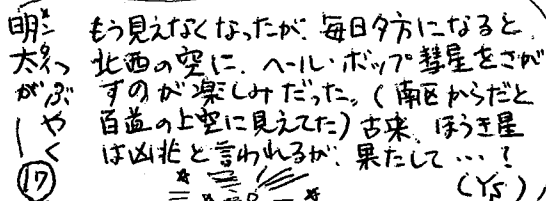 明太がつぶやく
ー
⑰
もう見えなくなったが、毎日夕方になると、
北西の空に、ヘール・ボップ彗星をさが
すのが楽しみだった。(南区からだと
百道の上空に見えてた)古来、ほうき星
は凶兆と言われるが、果たして…?
(YS)